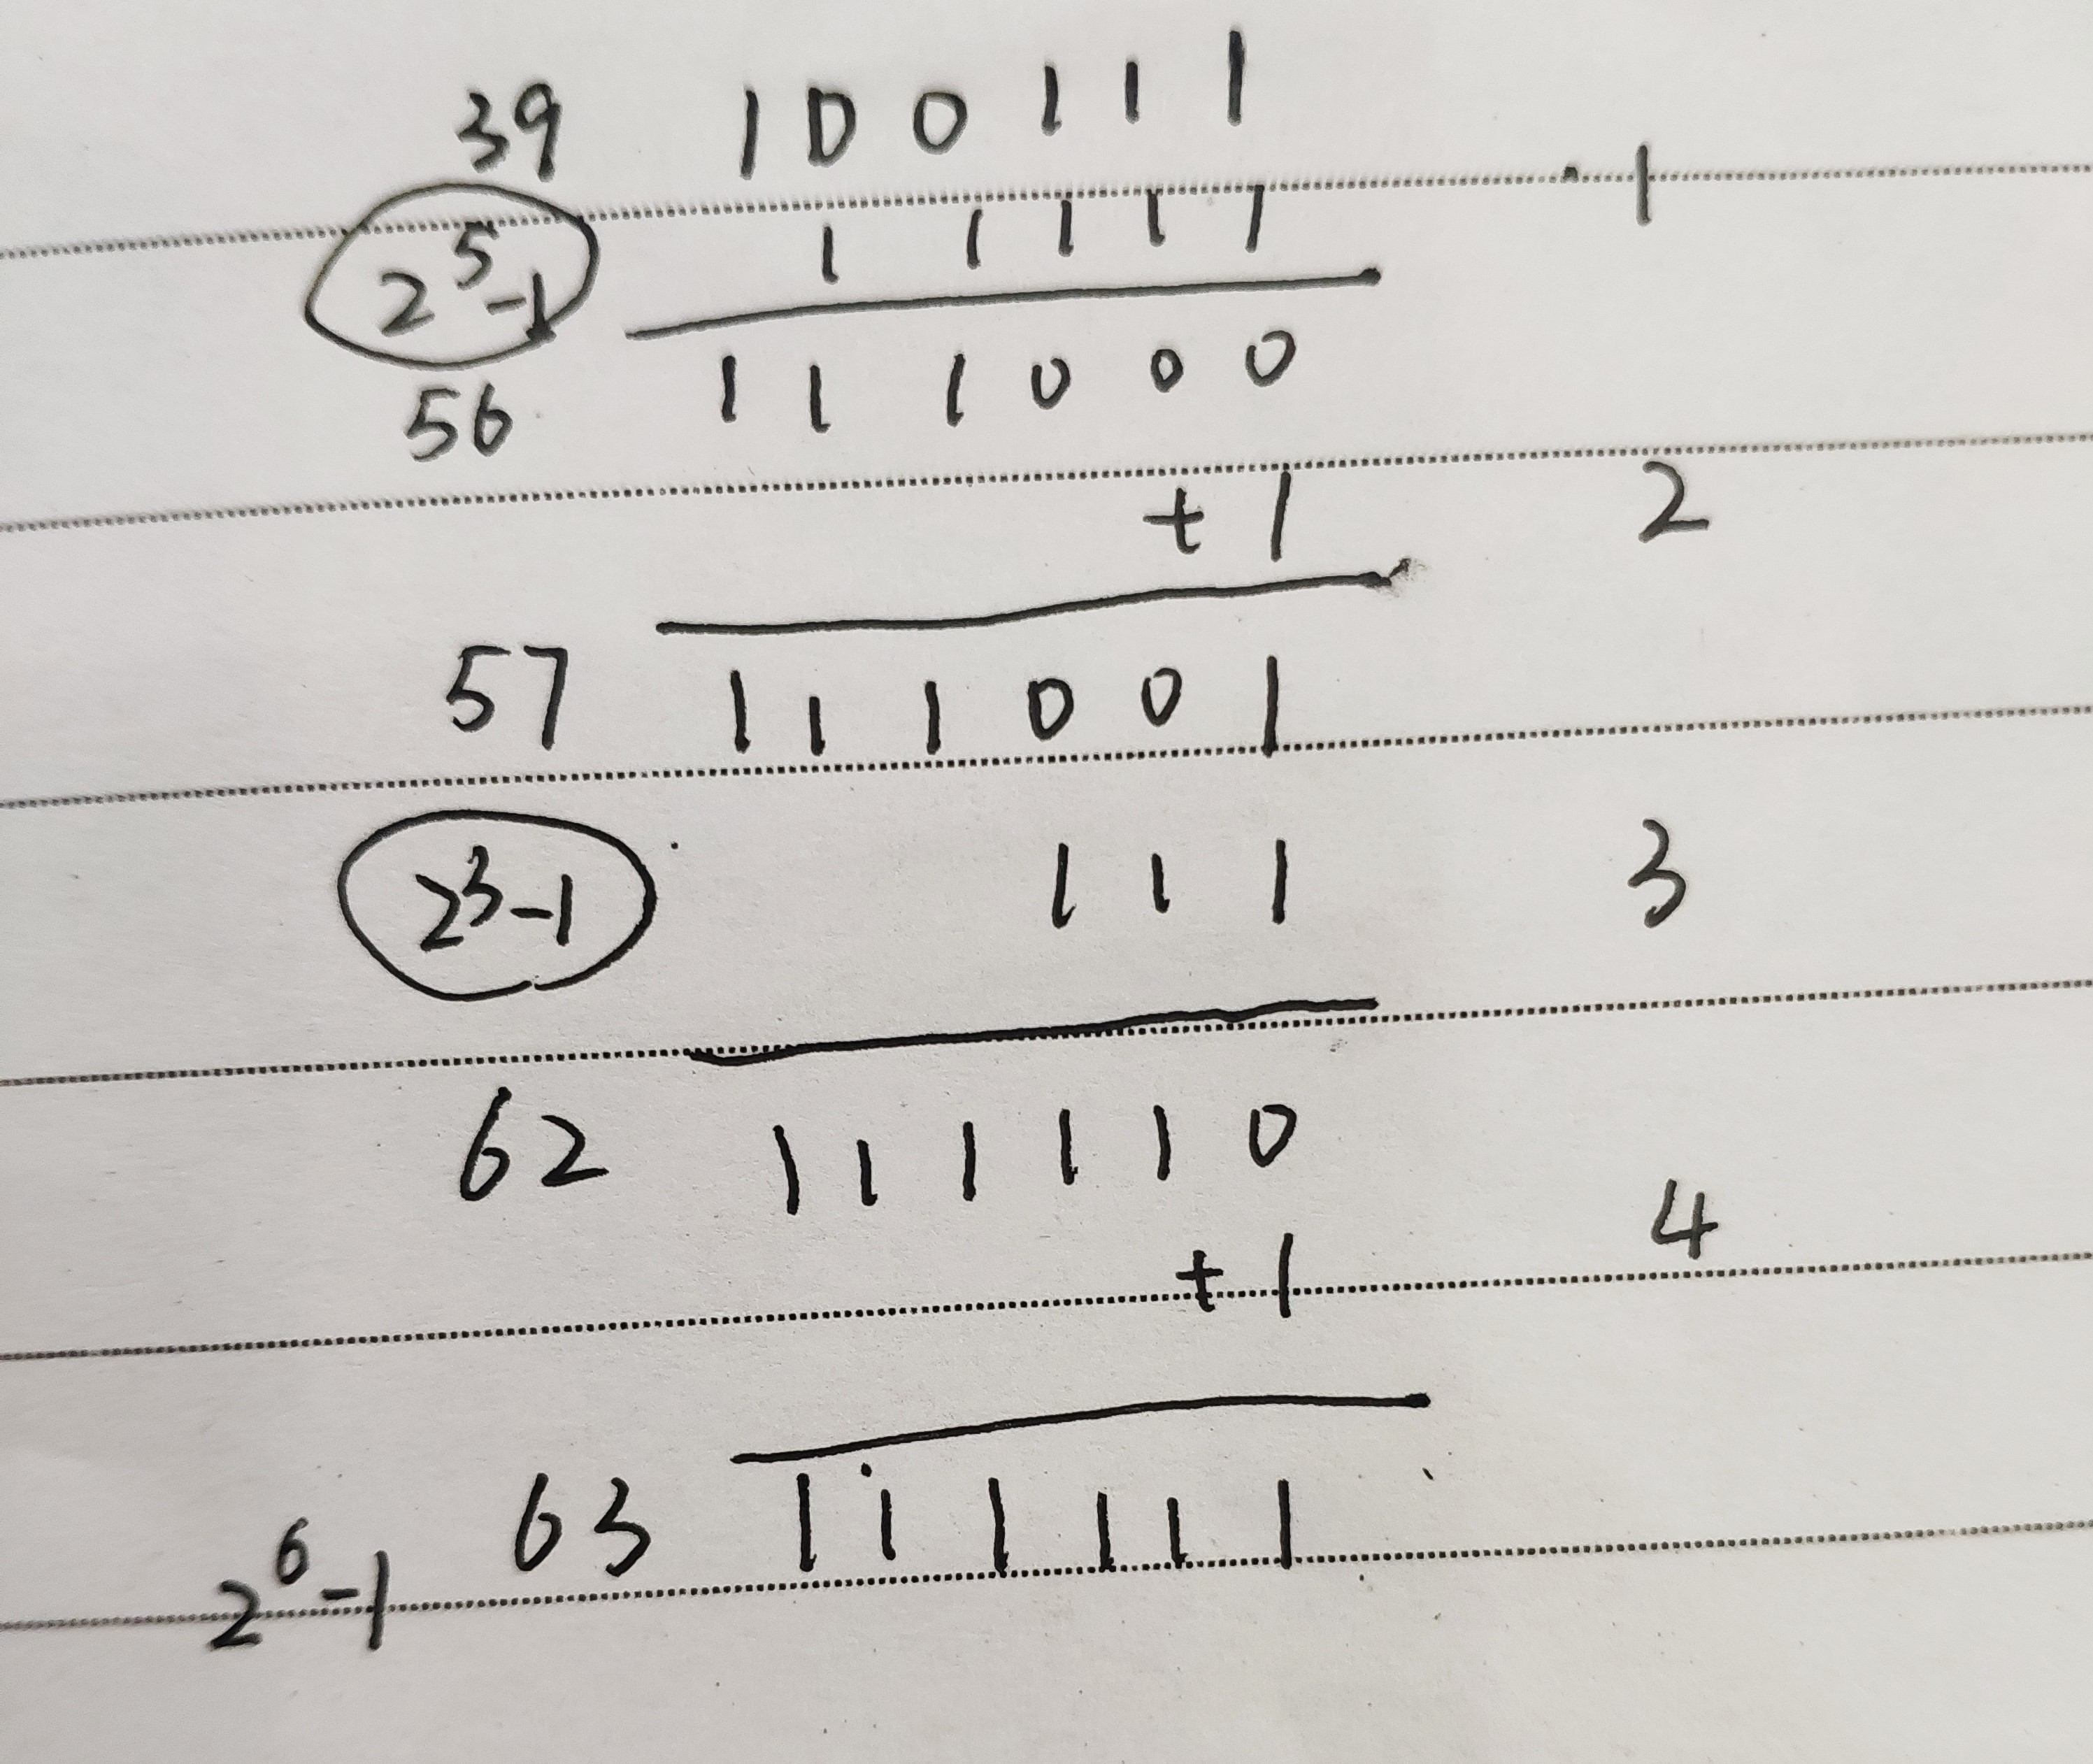 39 1 0 0 1 1 1
2⁵-1 1 1 1 1 1 1
56 1 1 1 0 0 0
+ 1 2
57 1 1 1 0 0 1
2³-1 1 1 1 3
62 1 1 1 1 1 0
+ 1 4
2⁶-1 63 1 1 1 1 1 1